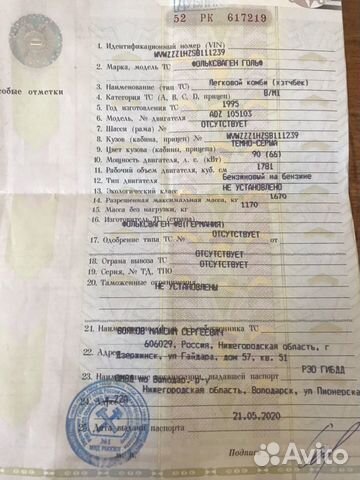 52 РК 617219
1. Идентификационный номер (VIN) WVWZZZ1HZSB111239
2. Марка, модель ТС ФОЛЬКСВАГЕН ГОЛЬФ
3. Наименование (тип ТС) Легковой комби (хэтчбек)
особые отметки
4. Категория ТС (А, В, С, D, прицеп) B/M1
5. Год изготовления ТС 1995
6. Модель, № двигателя ADZ 105103
7. Шасси (рама) № ОТСУТСТВУЕТ
8. Кузов (кабина, прицеп) № WVWZZZ1HZSB111239
9. Цвет кузова (кабины, прицепа) ТЕМНО-СЕРЫЙ
10. Мощность двигателя, л. с. (кВт) 90 (66)
11. Рабочий объем двигателя, куб. см 1781
12. Тип двигателя Бензиновый на бензине
13. Экологический класс НЕ УСТАНОВЛЕНО
14. Разрешенная максимальная масса, кг 1670
15. Масса без нагрузки, кг 1170
16. Изготовитель ТС (страна) ФОЛЬКСВАГЕН-ФВ(ГЕРМАНИЯ)
17. Одобрение типа ТС № ОТСУТСТВУЕТ от
18. Страна вывоза ТС ОТСУТСТВУЕТ
19. Серия, № ТД, ТПО ОТСУТСТВУЕТ
20. Таможенные ограничения
НЕ УСТАНОВЛЕНЫ
21. ТС
МАКСИМ СЕРГЕЕВИЧ
606029, Россия, Нижегородская область, г
22. Адрес Дзержинск, ул Гайдара, дом 57, кв. 51
23. выдавшей паспорт РЭО ГИБДД
по Володар.
Нижегородская область, Володарск, ул Пионерска
21.05.2020
25. Дата выдачи паспорта
М. П. Подпись
№1
МВД РОССИИ
Avito